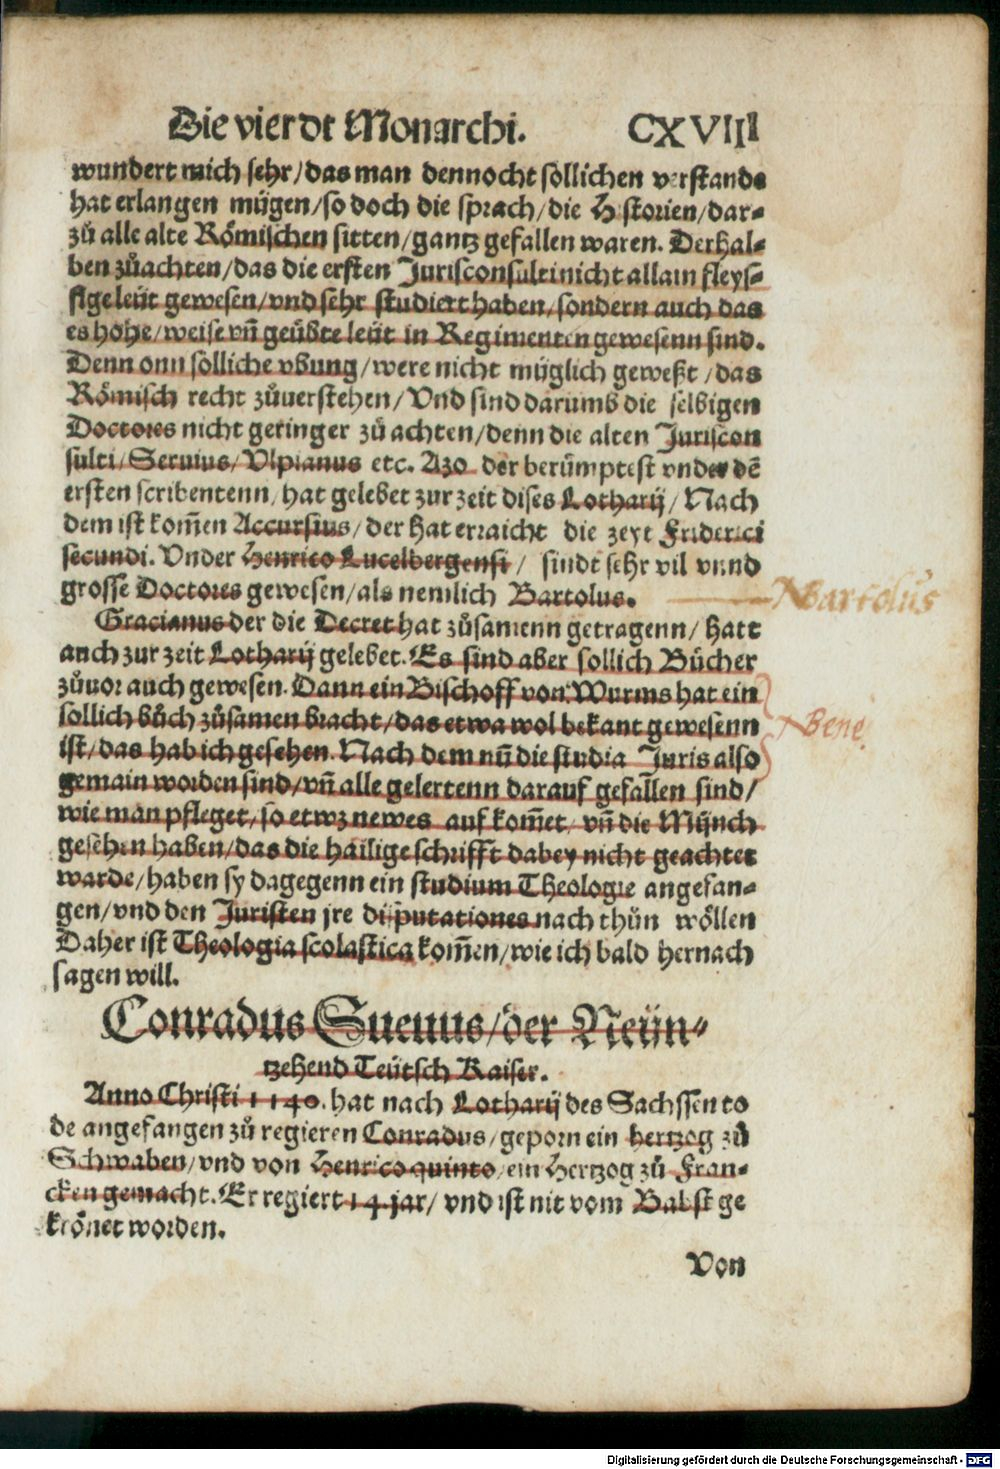 Die vierdt Monarchi. CXVIII
wundert mich sehr/das man dennocht sollichen verstands
hat erlangen mügen/so doch die sprach/die Historien/dar-
zů alle alte Römischen sitten/gantz gefallen waren. Derhal-
ben zůachten/das die ersten Jurisconsulti nicht allain fleys-
sige leüt gewesen/vnd sehr studiert haben/sondern auch das
es hohe/weise vñ geübte leüt in Regimenten gewesenn sind.
Denn onn solliche vbung/were nicht müglich geweßt/das
Römisch recht zůuerstehen/Vnd sind darumb die selbigen
Doctores nicht geringer zů achten/denn die alten Juriscon
sulti/Seruius/Vlpianus etc. Azo der berümptest vnder dẽ
ersten scribentenn/hat gelebet zur zeit dises Lotharij/Nach
dem ist kom̃en Accursius/der hat erraicht die zeyt Friderici
secundi. Vnder Henrico Lucelbergensi/ sindt sehr vil vnnd
grosse Doctores gewesen/als nemlich Bartolus.
Bartolus
Gracianus der die Decret hat zůsamenn getragenn/hatt
auch zur zeit Lotharij gelebet. Es sind aber sollich Bücher
zůuor auch gewesen. Dann ein Bischoff von Wurms hat ein
sollich bůch zůsamen bracht/das etwa wol bekant gewesenn
Bene
ist/das hab ich gesehen. Nach dem nũ die studia Juris also
gemain worden sind/vñ alle gelertenn darauf gefallen sind/
wie man pfleget/so etwz newes auf kom̃et/vñ die Münch
gesehen haben/das die hailige schrifft dabey nicht geachtet
warde/haben sy dagegenn ein studium Theologie angefan-
gen/vnd den Juristen jre disputationes nach thůn wöllen
Daher ist Theologia scolastica kom̃en/wie ich bald hernach
sagen will.
Conradus Sueuus/der Neün-
tzehend Teütsch Kaiser.
Anno Christi 1140. hat nach Lotharij des Sachssen to
de angefangen zů regieren Conradus/geporn ein hertzog zů
Schwaben/vnd von Henrico quinto/ein Hertzog zů Fran-
cken gemacht. Er regiert 14. jar/ vnd ist nit vom Babst ge
krönet worden.
Von
Digitalisierung gefördert durch die Deutsche Forschungsgemeinschaft - DFG